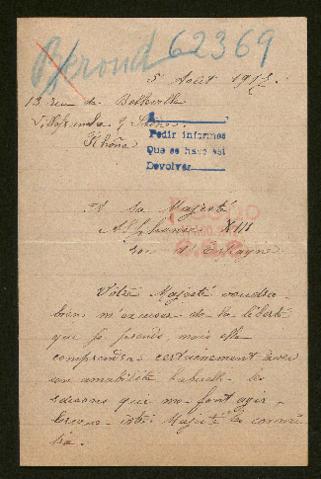 Beroud 62369
5 Août 1917.
13 rue de Belleville
Villefranche s/ Saône
Rhône
Pedir informes
Que se haga así
Devolver
A sa Majesté
Alphonse XIII
roi d'Espagne
Votre Majesté voudra
bien m'excuser de la liberté
que je prends, mais elle
comprendra certainement avec
son amabilité habituelle les
raisons qui me font agir
votre Majesté les connaî-
tra.